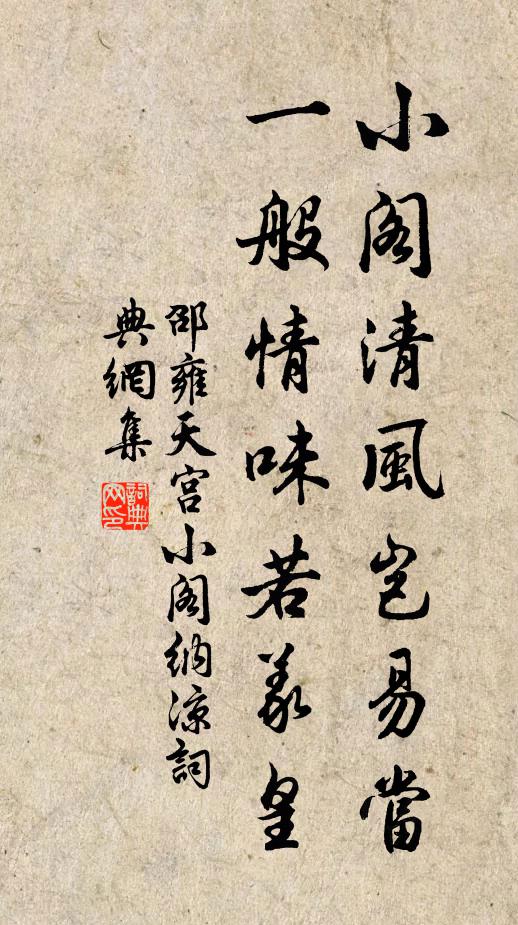 小閣清風豈易當
一般情味若羲皇
邵雍天宮小閣納涼詞
典網集
詞典網印